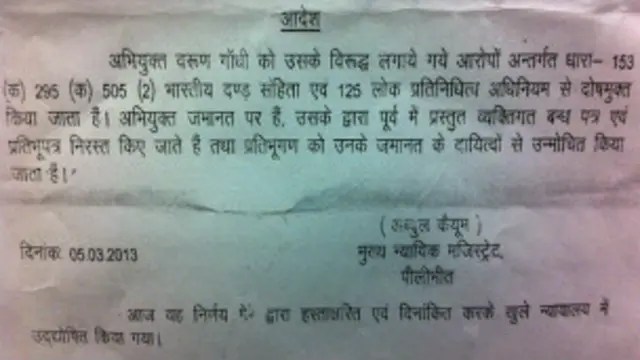 आदेश
अभियुक्त वरूण गाँधी को उसके विरूद्ध लगाये गये आरोपों अन्तर्गत धारा– 153
(क) 295 (क) 505 (2) भारतीय दण्ड संहिता एवं 125 लोक प्रतिनिधित्व अधिनियम से दोषमुक्त
किया जाता है। अभियुक्त जमानत पर है, उसके द्वारा पूर्व में प्रस्तुत व्यक्तिगत बन्ध पत्र एवं
प्रतिभूपत्र निरस्त किए जाते हैं तथा प्रतिभूगण को उनके जमानत के दायित्वों से उन्मोचित किया
जाता है।
(अब्दुल कैयूम)
दिनांक: 05.03.2013
मुख्य न्यायिक मजिस्ट्रेट,
पीलीभीत
आज यह निर्णय मेरे द्वारा हस्ताक्षरित एवं दिनांकित करके खुले न्यायालय में
उद्घोषित किया गया।